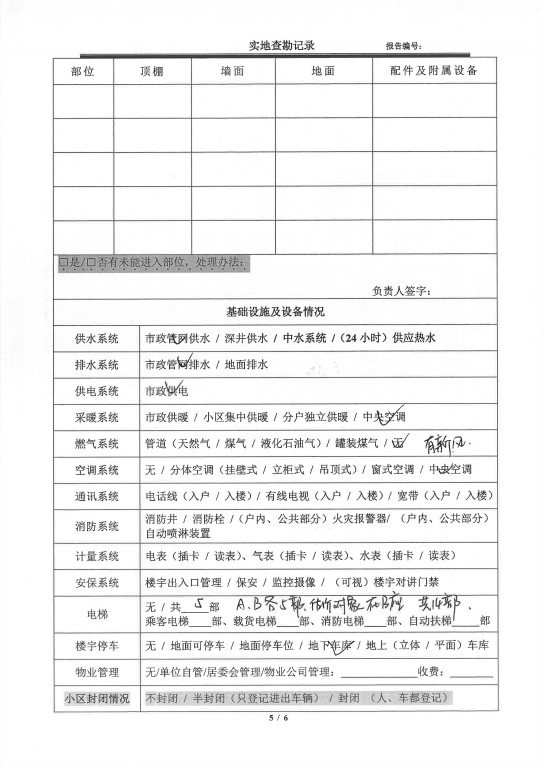 实地查勘记录 报告编号：
部位 顶棚 墙面 地面 配件及附属设备
□是/□否有未能进入部位，处理办法：
负责人签字：
基础设施及设备情况
供水系统 市政管网供水 / 深井供水 / 中水系统 /（24 小时）供应热水
排水系统 市政管网排水 / 地面排水
供电系统 市政供电
采暖系统 市政供暖 / 小区集中供暖 / 分户独立供暖 / 中央空调
燃气系统 管道（天然气 / 煤气 / 液化石油气）/ 罐装煤气 / 无 有新风.
空调系统 无 / 分体空调（挂壁式 / 立柜式 / 吊顶式）/ 窗式空调 / 中央空调
通讯系统 电话线（入户 / 入楼）/ 有线电视（入户 / 入楼）/ 宽带（入户 / 入楼）
消防系统 消防井 / 消防栓 /（户内、公共部分）火灾报警器/ （户内、公共部分）
自动喷淋装置
计量系统 电表（插卡 / 读表）、气表（插卡 / 读表）、水表（插卡 / 读表）
安保系统 楼宇出入口管理 / 保安 / 监控摄像 / （可视）楼宇对讲门禁
电梯 无 / 共 5 部 A.B各5部,估价对象在B座
乘客电梯____部、载货电梯____部、消防电梯____部、自动扶梯____部
楼宇停车 无 / 地面可停车 / 地面停车位 / 地下车库 / 地上（立体 / 平面）车库
物业管理 无/单位自管/居委会管理/物业公司管理：____________收费：______
小区封闭情况 不封闭 / 半封闭（只登记进出车辆） / 封闭 （人、车都登记）
5 / 6